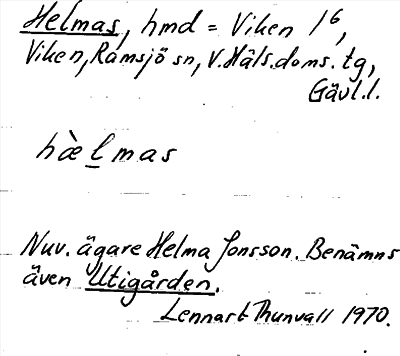 Helmas, hmd = Viken 1⁶,
Viken, Ramsjö sn, V. Häls. doms. tg,
Gävl. l.
hæ̀l̲mas
Nuv. ägare Helma Jonsson. Benämns
även Utigården.
Lennart Thunvall 1970.